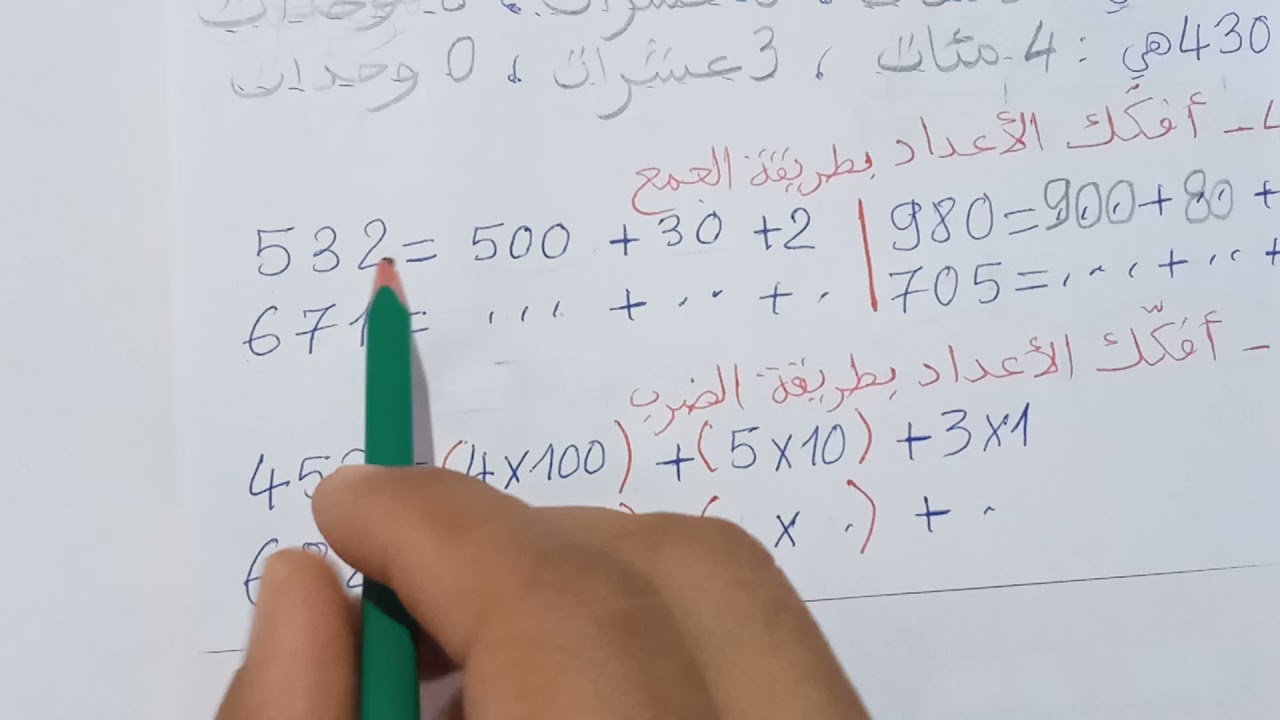 430 هي : 4 مئات ، 3 عشرات ، 0 وحدات
4- أفكّك الأعداد بطريقة الجمع
532 = 500 + 30 + 2 | 980 = 900 + 80 +
671 = ... + .. + . | 705 = ... + .. +
- أفكّك الأعداد بطريقة الضرب
453 = (4x100) + (5x10) + 3x1
x .) + .